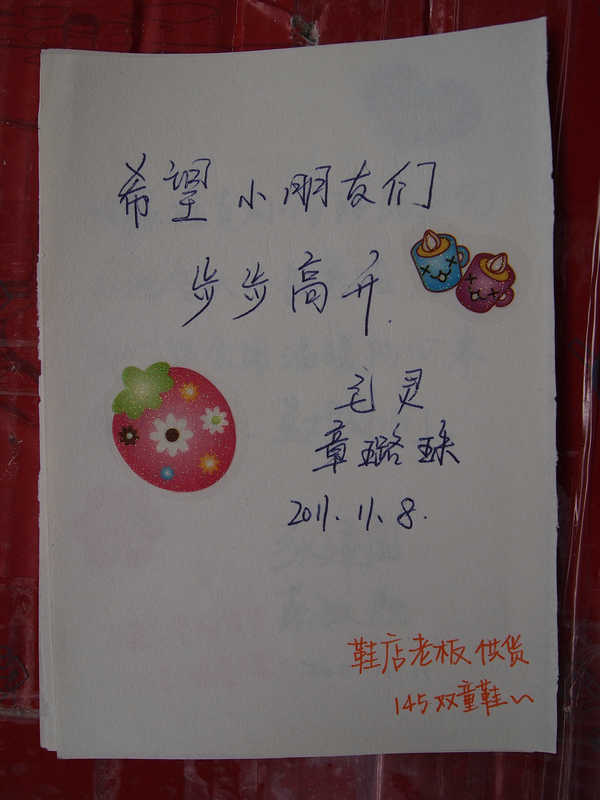 希望小朋友们
步步高升.
宅灵
章璐珠
2011.11.8.
鞋店老板供货
145双童鞋~